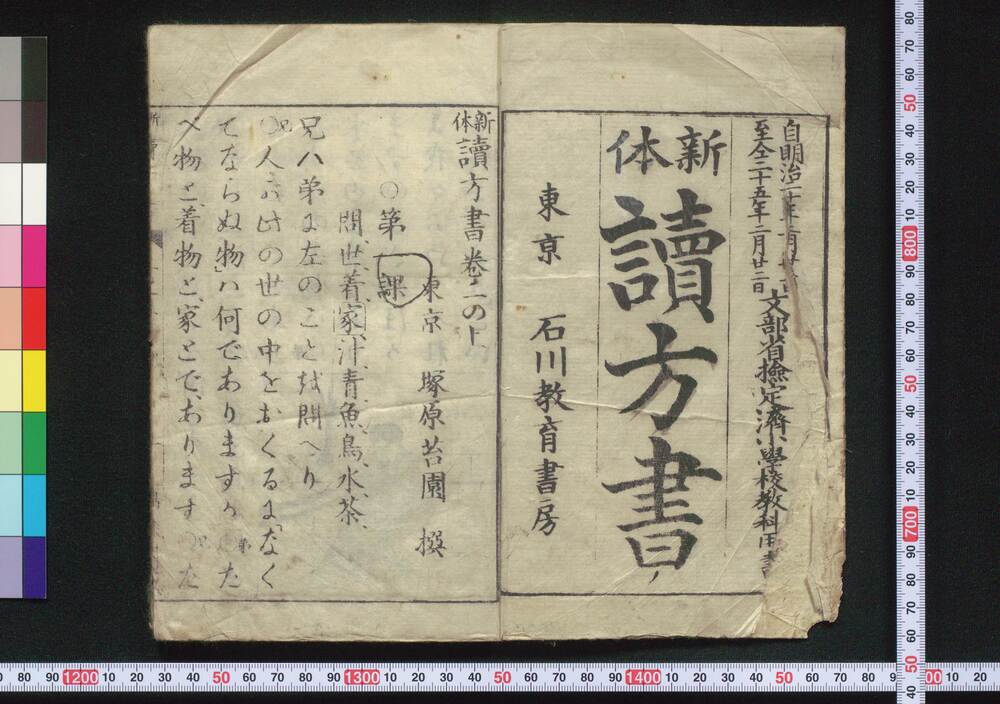 自明治二十年二月廿
至仝二十五年二月廿二日
文部省撿定濟小學校教科用書
新体
讀方書
東京 石川教育書房
新体讀方書卷二の上
東京 塚原苔園 撰
○第 課
問、世、着、家、汁、青、魚、鳥、水、茶、
兄ハ弟に左のことを問へり
○人が此の世の中をおくるに、なく
てならぬ物ハ何でありますか た
べ物と、着物と、家とで、あります た